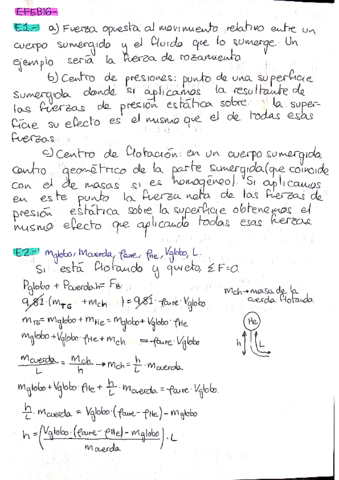 EFEB16-
E1.- a) Fuerza opuesta al movimiento relativo entre un
cuerpo sumergido y el fluido que lo sumerge. Un
ejemplo sería la fuerza de rozamiento.
b) Centro de presiones: punto de una superficie
sumergida donde si aplicamos la resultante de
las fuerzas de presión estática sobre la super-
ficie su efecto es el mismo que el de todas esas
fuerzas.
c) Centro de flotación: en un cuerpo sumergido,
centro geométrico de la parte sumergida (que coincide
con el de masas si es homogéneo). Si aplicamos
en este punto la fuerza neta de las fuerzas de
presión estática sobre la superficie obtenemos el
mismo efecto que aplicando todas esas fuerzas.
E2.- mglobo, Mcuerda, ρaire, ρHe, Vglobo, L.
Si está flotando y quieto, ΣF=0.
Pglobo + Pcuerda = FB
9,81 (mTG + mch) = 9,81 · ρaire · Vglobo
mch → masa de la
cuerda flotando.
mTG = mglobo + mHe = mglobo + Vglobo · ρHe
mglobo + Vglobo · ρHe + mch = ρaire · Vglobo
He
h
L
mcuerda/L = mch/h → mch = h/L · mcuerda
mglobo + Vglobo · ρHe + h/L · mcuerda = ρaire · Vglobo
h/L · mcuerda = Vglobo · (ρaire - ρHe) - mglobo
h = (Vglobo · (ρaire - ρHe) - mglobo / mcuerda) · L